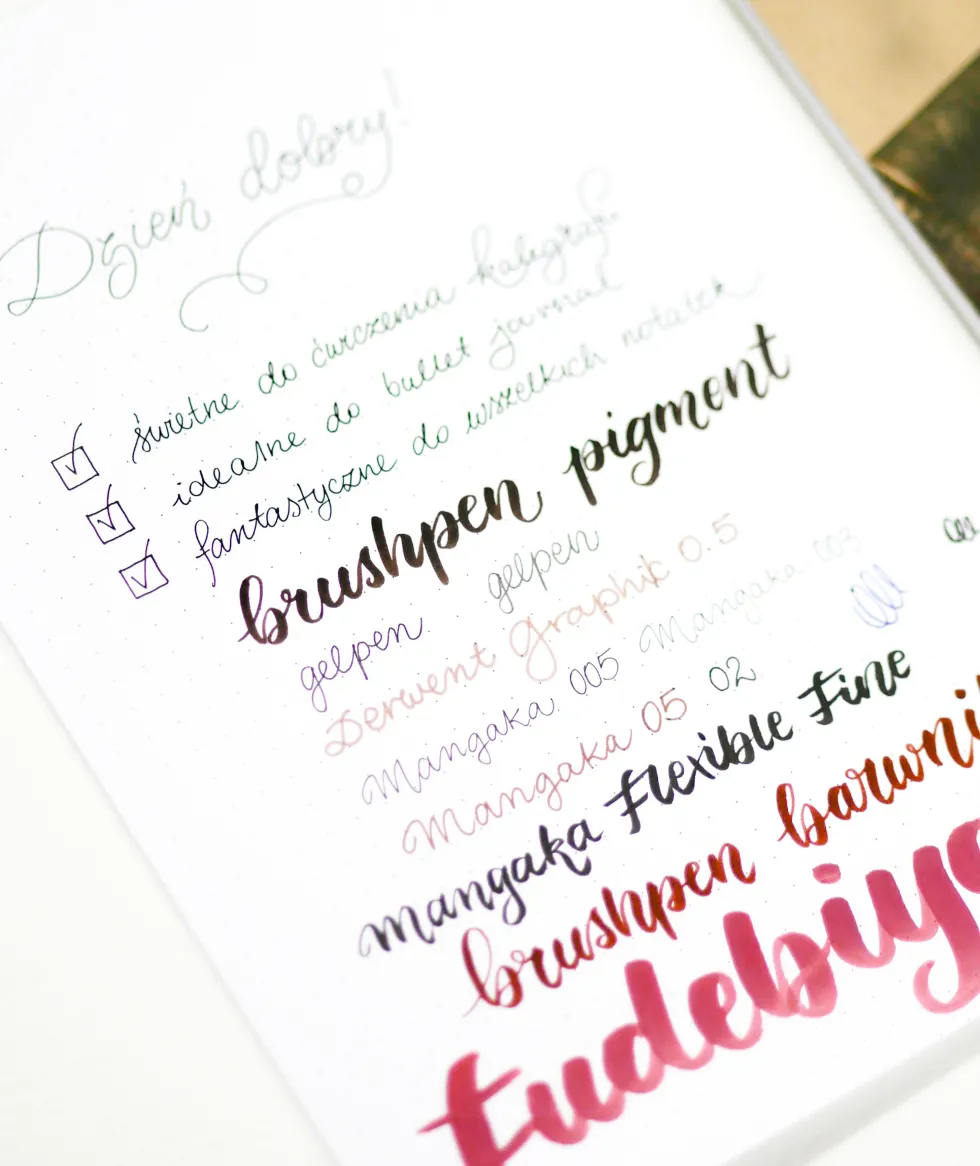 Dzień dobry!
świetne do ćwiczenia kaligrafii
idealne do bullet journal
fantastyczne do wszelkich notatek
brushpen pigment
gelpen gelpen
Derwent Graphik 0.5
Mangaka 005 Mangaka 003
Mangaka 05 02
mangaka Flexible Fine
brushpen barwni
tudebiy